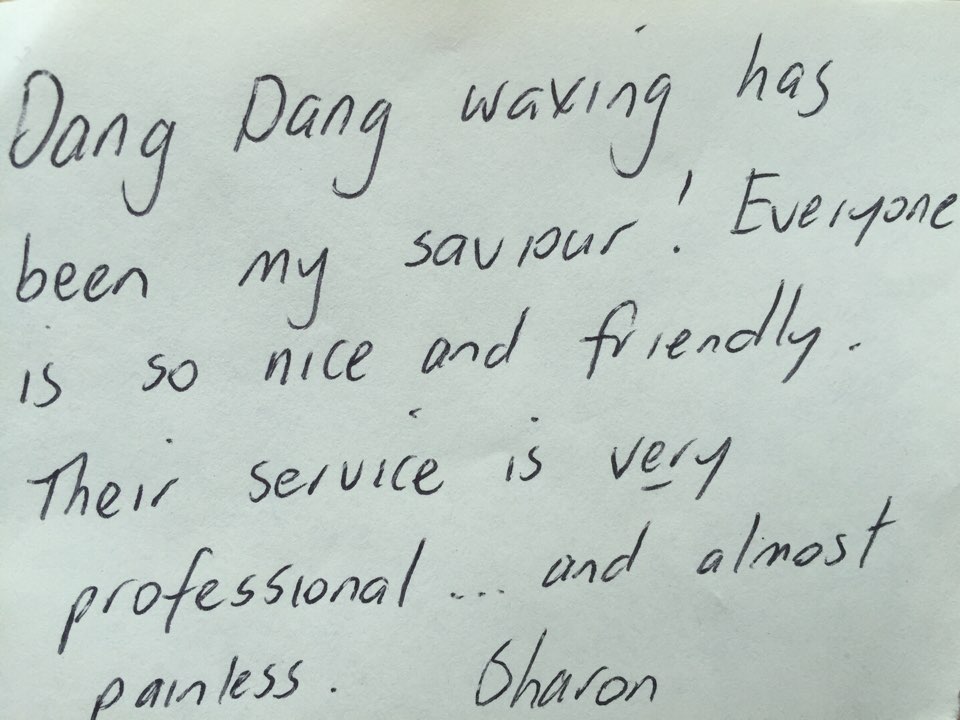 Dang Dang waxing has
been my saviour! Everyone
is so nice and friendly.
Their service is very
professional... and almost
painless. Sharon